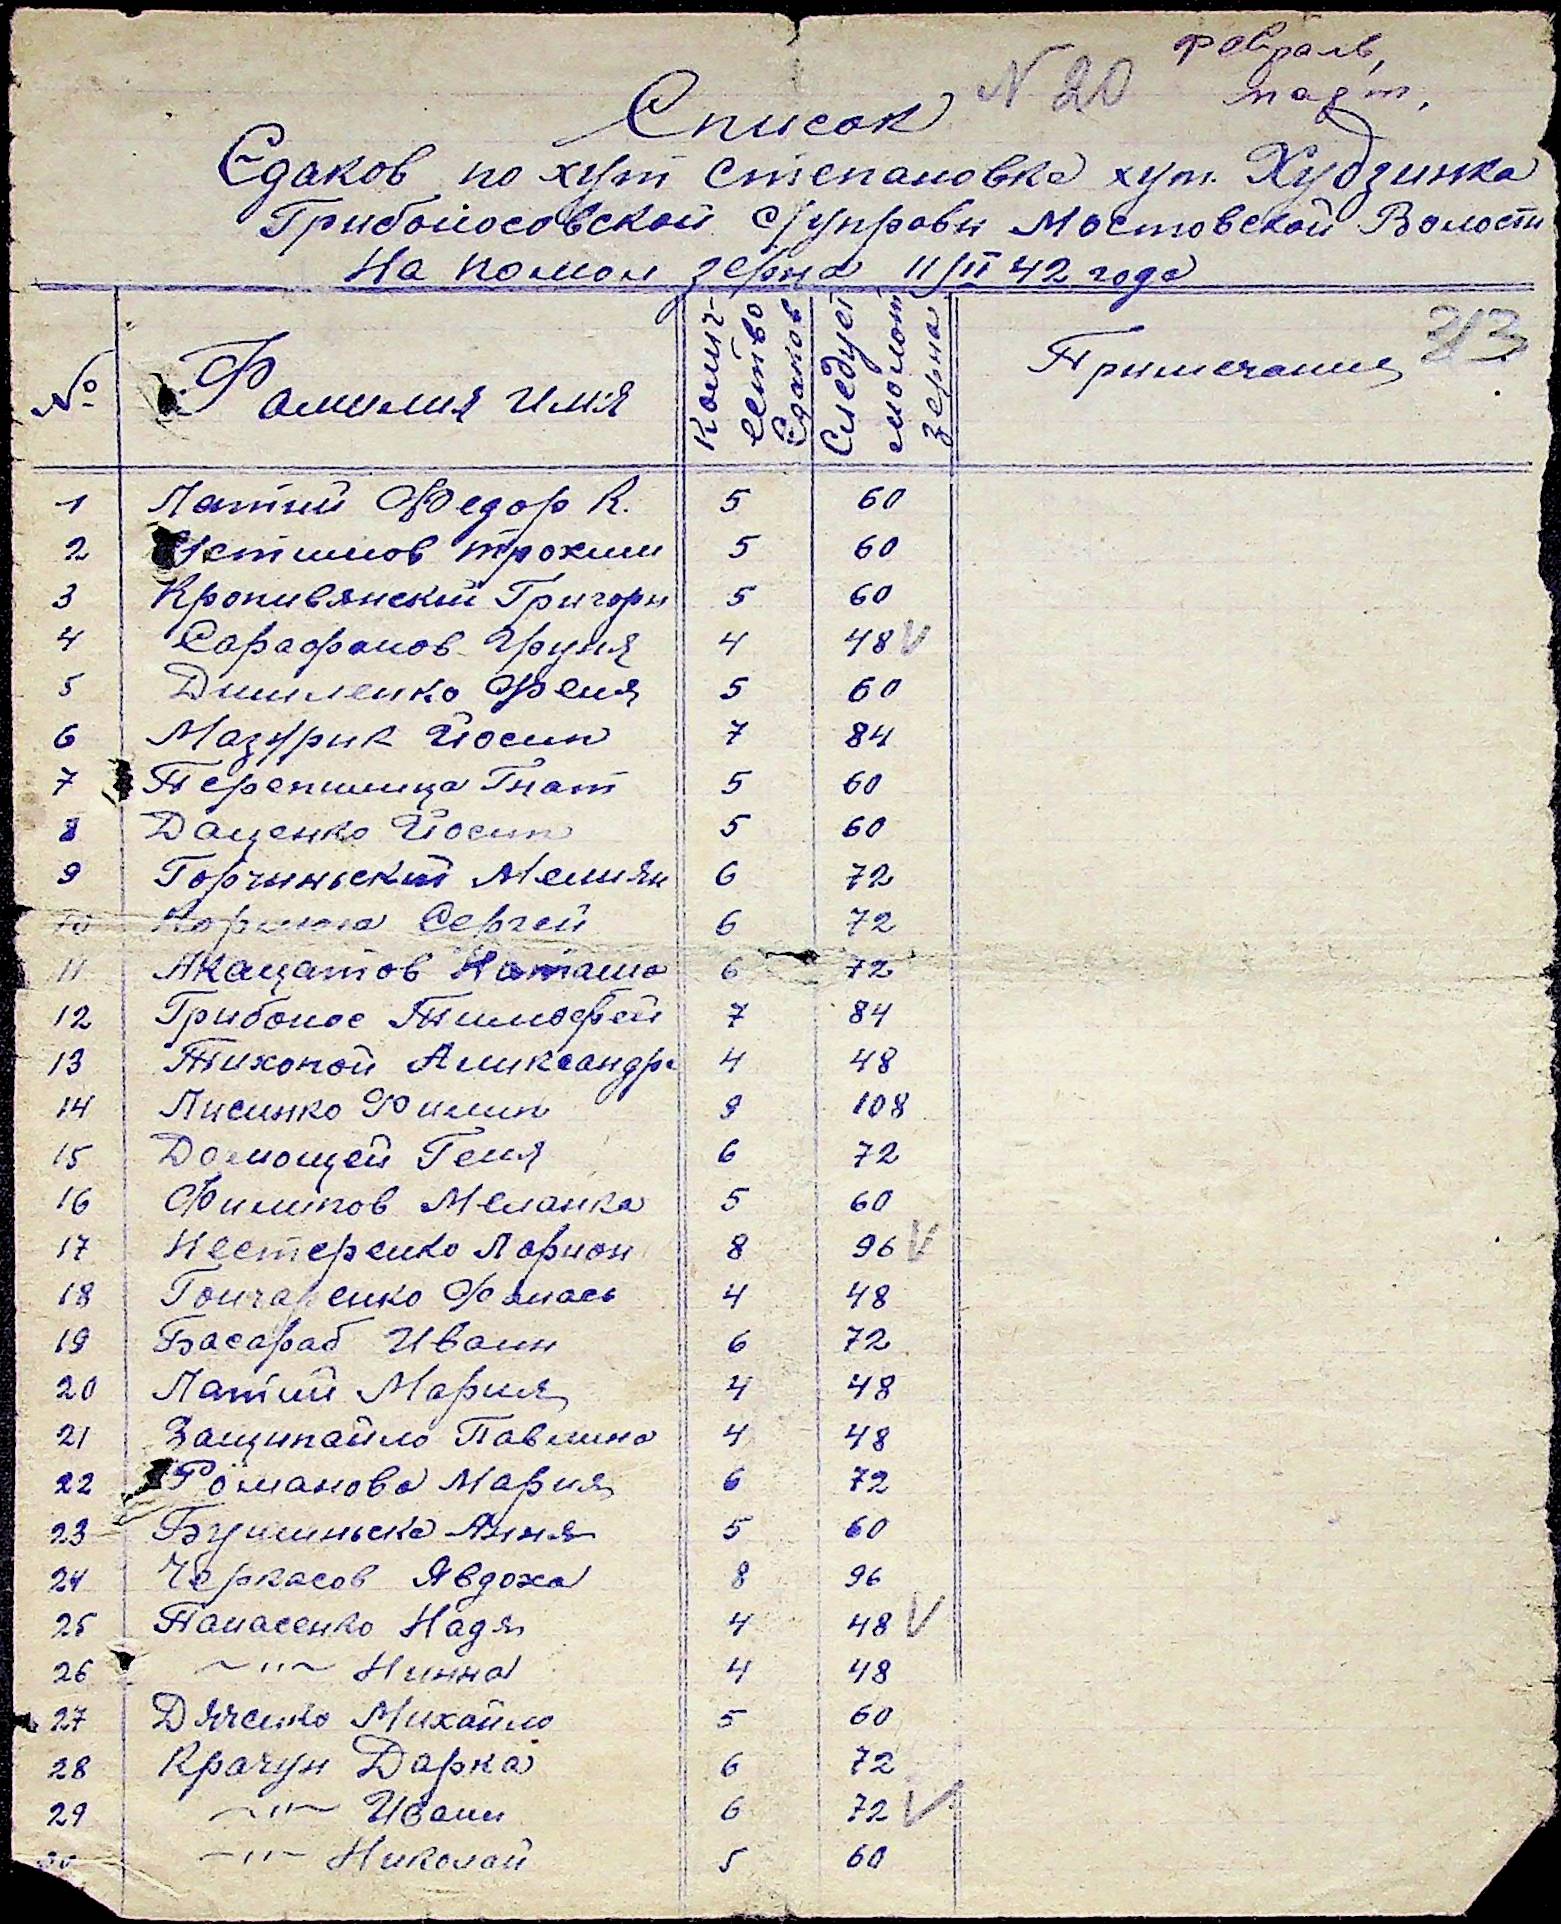 февраль,
март,
N 20
Список
Едаков по хут Степановке хут. Худзинка
Грибоносовской с/управы Мостовской Волости
На помол зерна 11/II 42 года
№ Фамилия имя Количество Едаков Следует молот зерна Примечание 313
1 Латий Федор К. 5 60
2 Устимов Трохим 5 60
3 Кропивянский Григори 5 60
4 Сарафонов Груня 4 48 V
5 Дишленко Феня 5 60
6 Мазурик Йосип 7 84
7 Терепишица Гнат 5 60
8 Даценко Йосип 5 60
9 Горчиньский Мелиян 6 72
10 Сергей 6 72
11 Акацатов Наташа 6 72
12 Грибонос Тимофей 7 84
13 Тихоной Аликсандра 4 48
14 Лисинко Филип 9 108
15 Домощей Геня 6 72
16 Филипов Меланка 5 60
17 Нестеренко Ларион 8 96 V
18 Гончаренко Фанась 4 48
19 Басараб Иван 6 72
20 Латий Мария 4 48
21 Защипайло Павлина 4 48
22 Романова Мария 6 72
23 Бушиньска Ання 5 60
24 Черкасов Явдоха 8 96
25 Панасенко Надя 4 48 V
26 ~"~ Нинна 4 48
27 Дяченко Михайло 5 60
28 Крачун Дарка 6 72
29 ~"~ Иван 6 72 V
30 ~"~ Николай 5 60